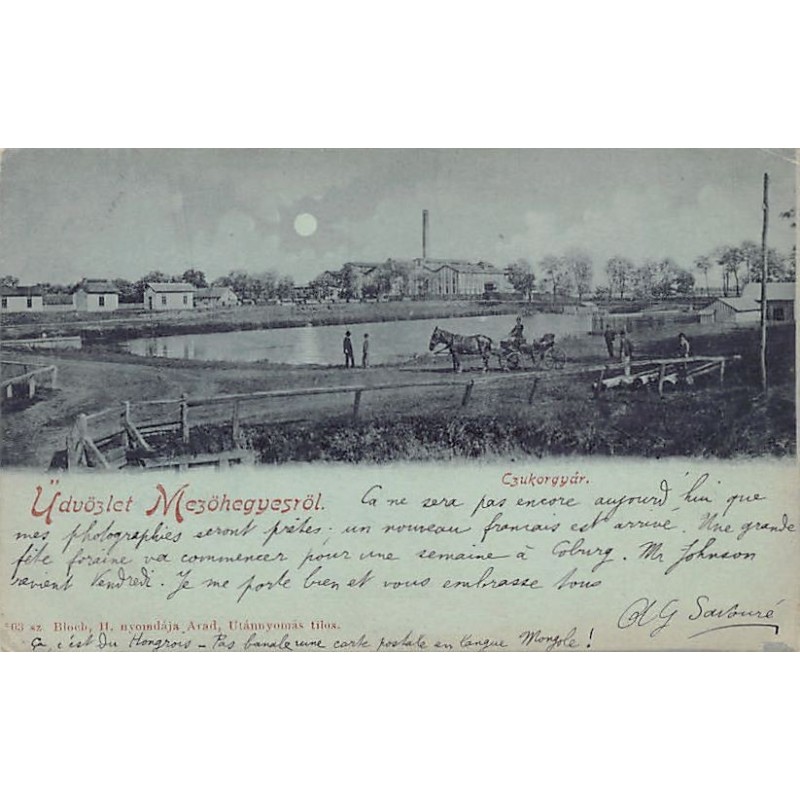 Czukorgyár.
Üdvözlet Mezőhegyesről.
Ca ne sera pas encore aujourd'hui que
mes photographies seront prêtes. un nouveau francais est arrivé. Une grande
fête foraine va commencer pour une semaine à Coburg. Mr Johnson
revient Vendredi. Je me porte bien et vous embrasse tous
G Savouré
03 sz Bloch, H. nyomdája Arad, Utánnyomás tilos.
Ça, c'est du Hongrois - Pas banale une carte postale en langue Mongole!